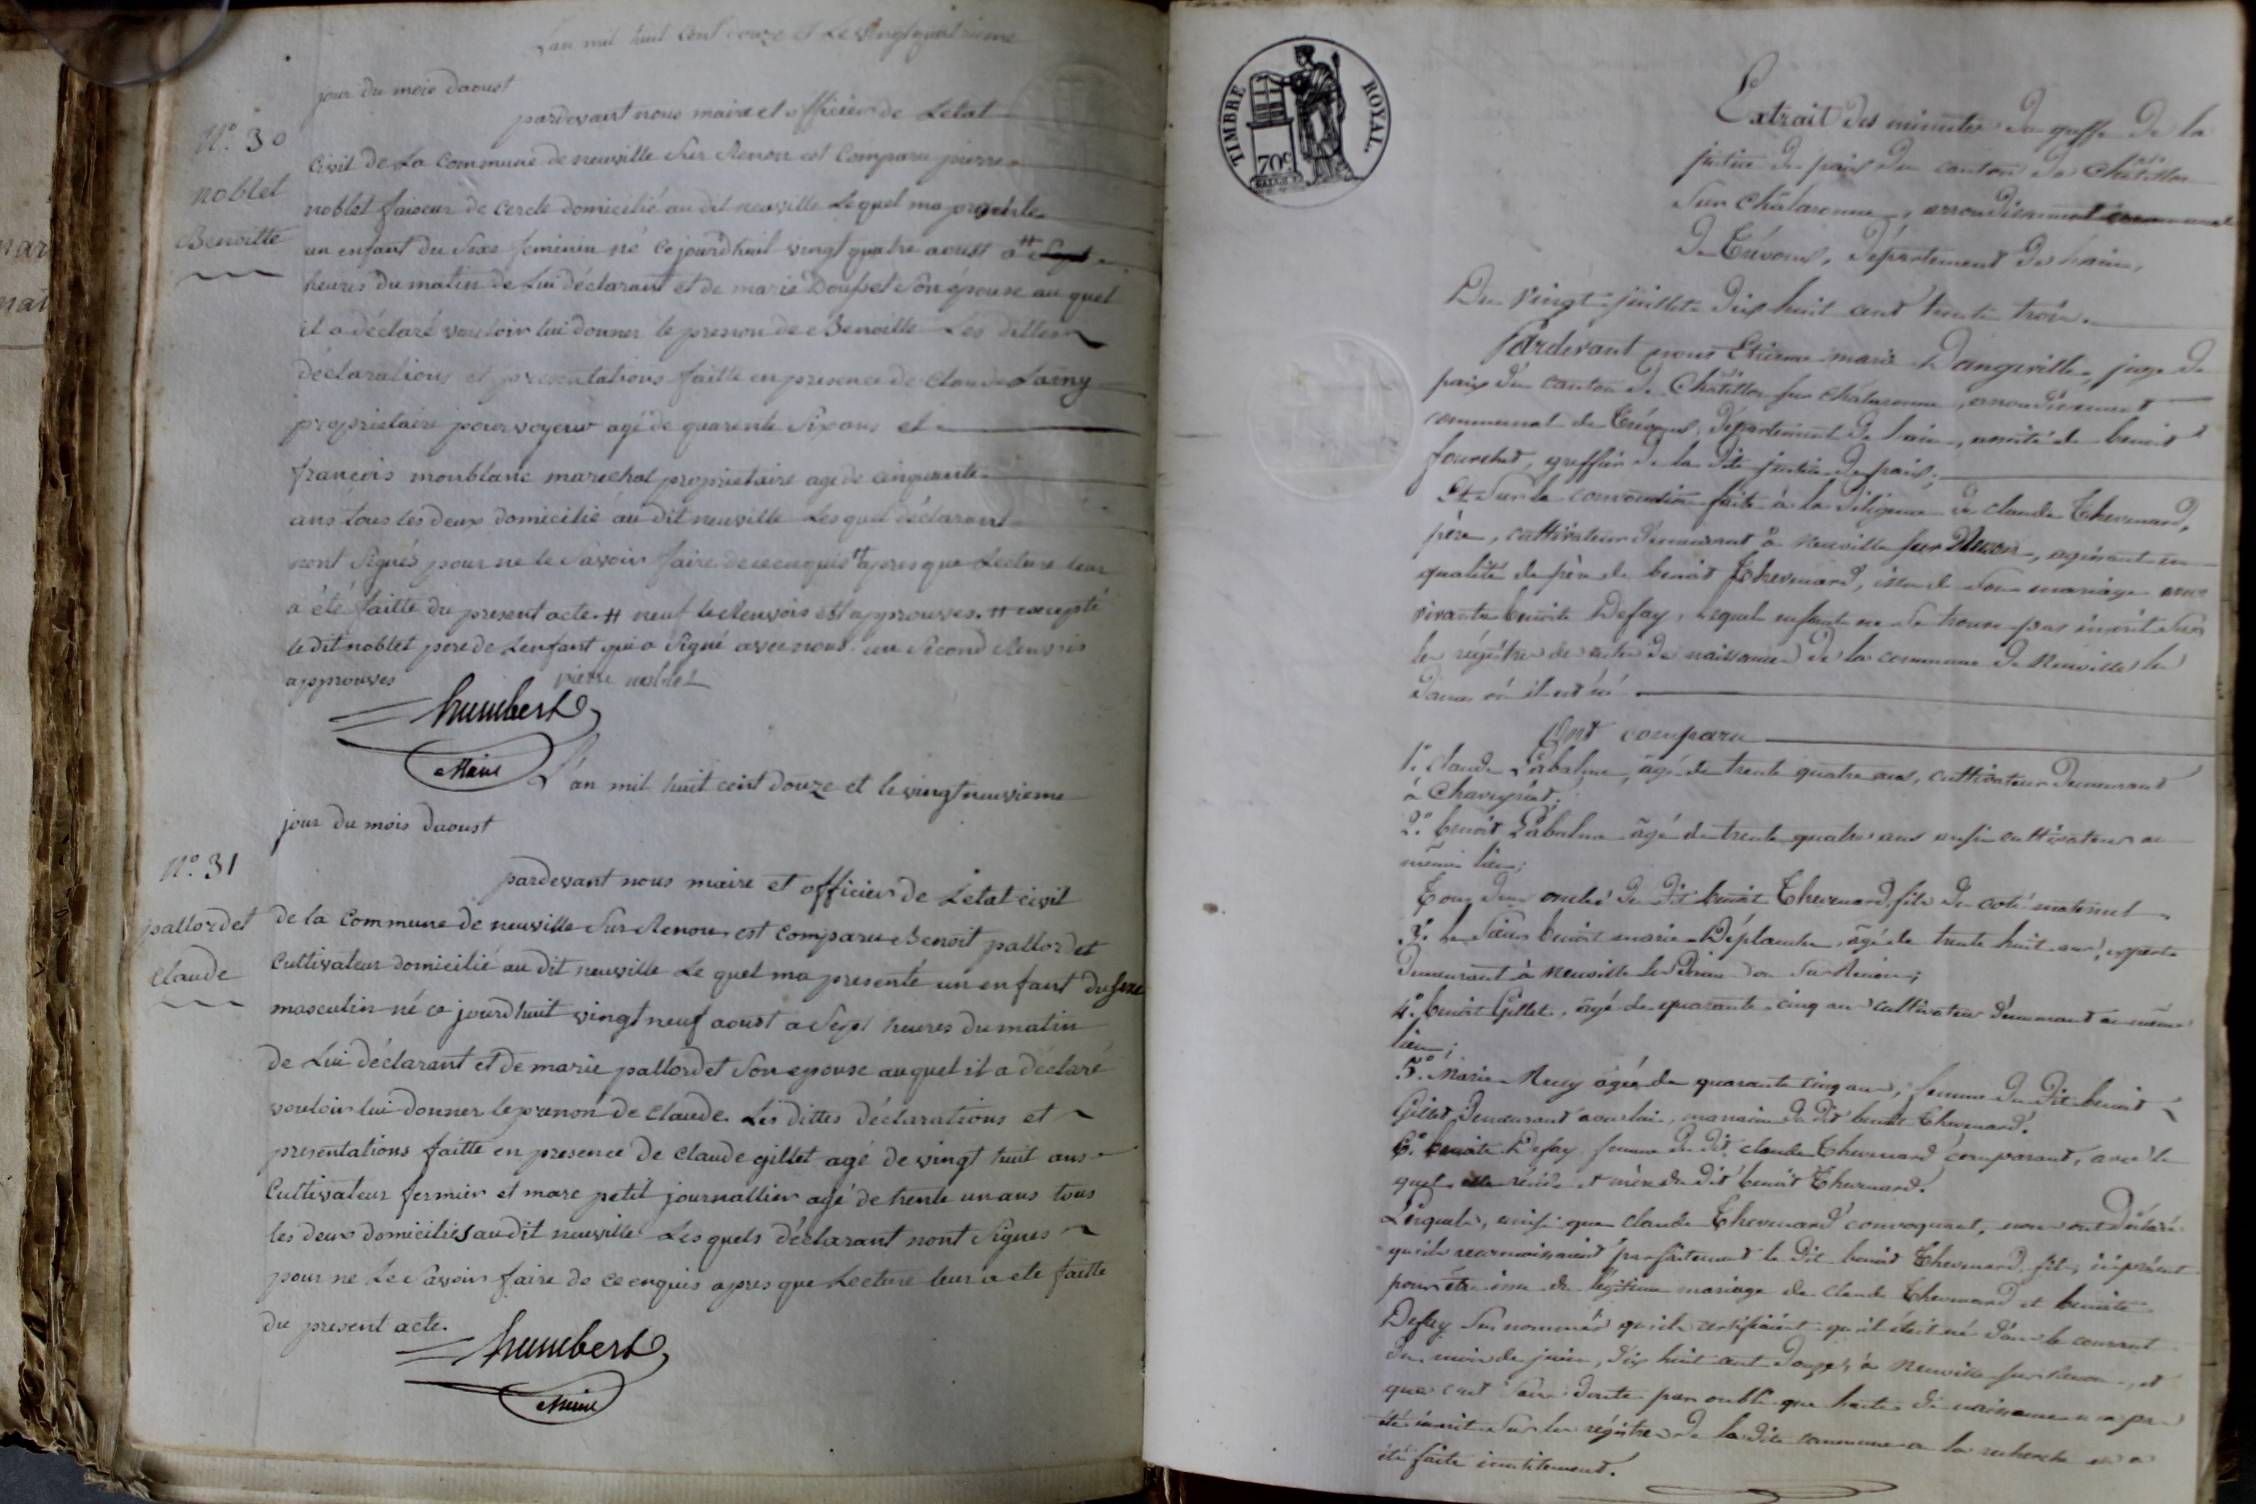 L'an mil huit cent douze et Le vingt quatrieme
jour du mois daoust
pardevant nous maire et officier de Letat
N.° 30
noblet
Benoitte
Civil de La Commune de neuville Sur Renon est Comparu pierre
noblet faiseur de cercle domicilié au dit neuville Lequel ma presenté
un enfant du Sexe feminin né Ce jourdhuit vingt quatre aoust a # Sept
heures du matin de Lui déclarant et de marie Doufset Son épouse au quel
il a déclaré vouloir lui donner le prenon de Benoitte Les dittes
déclarations et presentations faitte en presence de Claude Lamy
proprietaire pourvoyeur agé de quarente Six ans et
francois monblanc marechal proprietaire age de cinquante
ans tous les deux domicilié au dit neuville Les quel déclarant
nont Signés pour ne le Savoir faire de ce enquis # apres que Lecture leur
a été faitte du present acte. # neuf le Renvois est approuvés. # excepté
le dit noblet pere de Lenfant qui a Signé avec nous un Second Renvois
approuves pierre noblet
humbert
Maire
L'an mil huit cent douze et le vingt neuvieme
jour du mois daoust
N.° 31
pallordet
Claude
pardevant nous maire et officier de Letat civil
de la Commune de neuville Sur Renon est Comparu Benoit pallordet
Cultivateur domicilié au dit neuville Le quel ma presenté un enfant du Sexe
masculin né ce jourdhuit vingt neuf aoust a Sept heures du matin
de Lui déclarant et de marie pallordet Son epouse au quel il a déclaré
vouloir lui donner le prenon de Claude. Les dittes déclarations et
presentations faitte en presence de Claude gillet agé de vingt huit ans
Cultivateur fermier et marc petit journallier agé de trente un ans tous
les deux domiciliés au dit neuville Les quels déclarant nont Signes
pour ne Le Savoir faire de ce enquis apres que Lecture leur a ete faitte
du present acte.
humbert
Maire
TIMBRE ROYAL.
70c
Extrait des minutes du greffe de la
justice de paix du canton de Châtillon
sur Chalaronne, arrondissement communal
de Trévoux, Département de l'ain,
Du vingt juillet dix huit cent trente trois.
Pardevant nous Etienne marie Dangeville, juge de
paix du canton de Châtillon sur Chalaronne, arrondissement
communal de Trévoux, département de l'ain, assisté de benoit
fourchet, greffier de la dite justice de paix;
Et sur la convocation faite à la diligence de claude Thevenard,
père, cultivateur demeurant à Neuville sur Renon, agissant en
qualité de père de benoit Thevenard, issu de son mariage avec
vivante benoite Defay, lequel enfant ne se trouve pas inscrit sur
les régistres des actes de naissance de la commune de Neuville les
dames où il est né
Ont comparu
1.° Claude Labalme, âgé de trente quatre ans, cultivateur demeurant
à Chaveyriat;
2.° benoit Labalme âgé de trente quatre ans aussi cultivateur au
même lieu;
Tous deux oncles du dit benoit Thevenard, fils du coté maternel
3.° le Sieur benoit marie Déplanche, âgé de trente huit ans, expert
demeurant à Neuville les Dames ou sur Renon;
4.° benoit Gillet, âgé de quarante cinq ans cultivateur demeurant au même
lieu;
5.° Marie Recy âgée de quarante cinq ans, femme du dit benoit
Gillet, demeurant avec lui, marraine du dit benoit Thevenard.
6.° benoite Defay femme du dit claude Thevenard comparant, avec le
quel elle réside et mère du dit benoit Thevenard.
Lesquels, ainsi que claude Thevenard convoquant, nous ont déclaré
qu'ils reconnaissaient parfaitement le dit benoit Thevenard, fils, ici présent
pour être issu du légitime mariage de claude Thevenard et benoite
Defay sus nommés qu'ils certifiaient qu'il était né dans le courant
du mois de juin, dix huit cent douze, à Neuville sur Renon, et
que c'est sans doute par oubli que l'acte de naissance n'a pas
été inscrit sur les régistres de la dite commune ou la recherche en a
été faite inutilement.